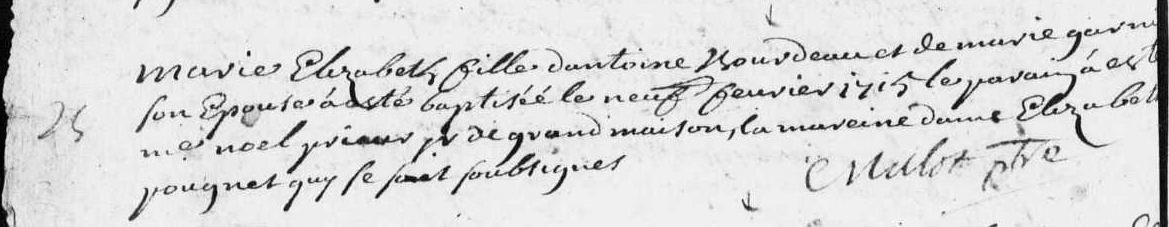 marie Elizabeth fille dantoine Bourdeau et de marie garni
son Epouse à esté baptiséé le neuf feurier 1715 le parain à esté
25 me noel prieur sr de grandmaison, la mareine dame Elizabeth
pougnet quy se soit soubsignes
Mulot ptre